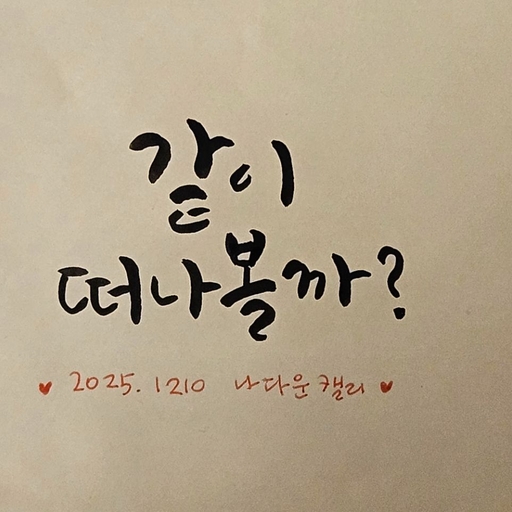 같이
떠나볼까?
♥ 2025. 1210 나다운캘리 ♥